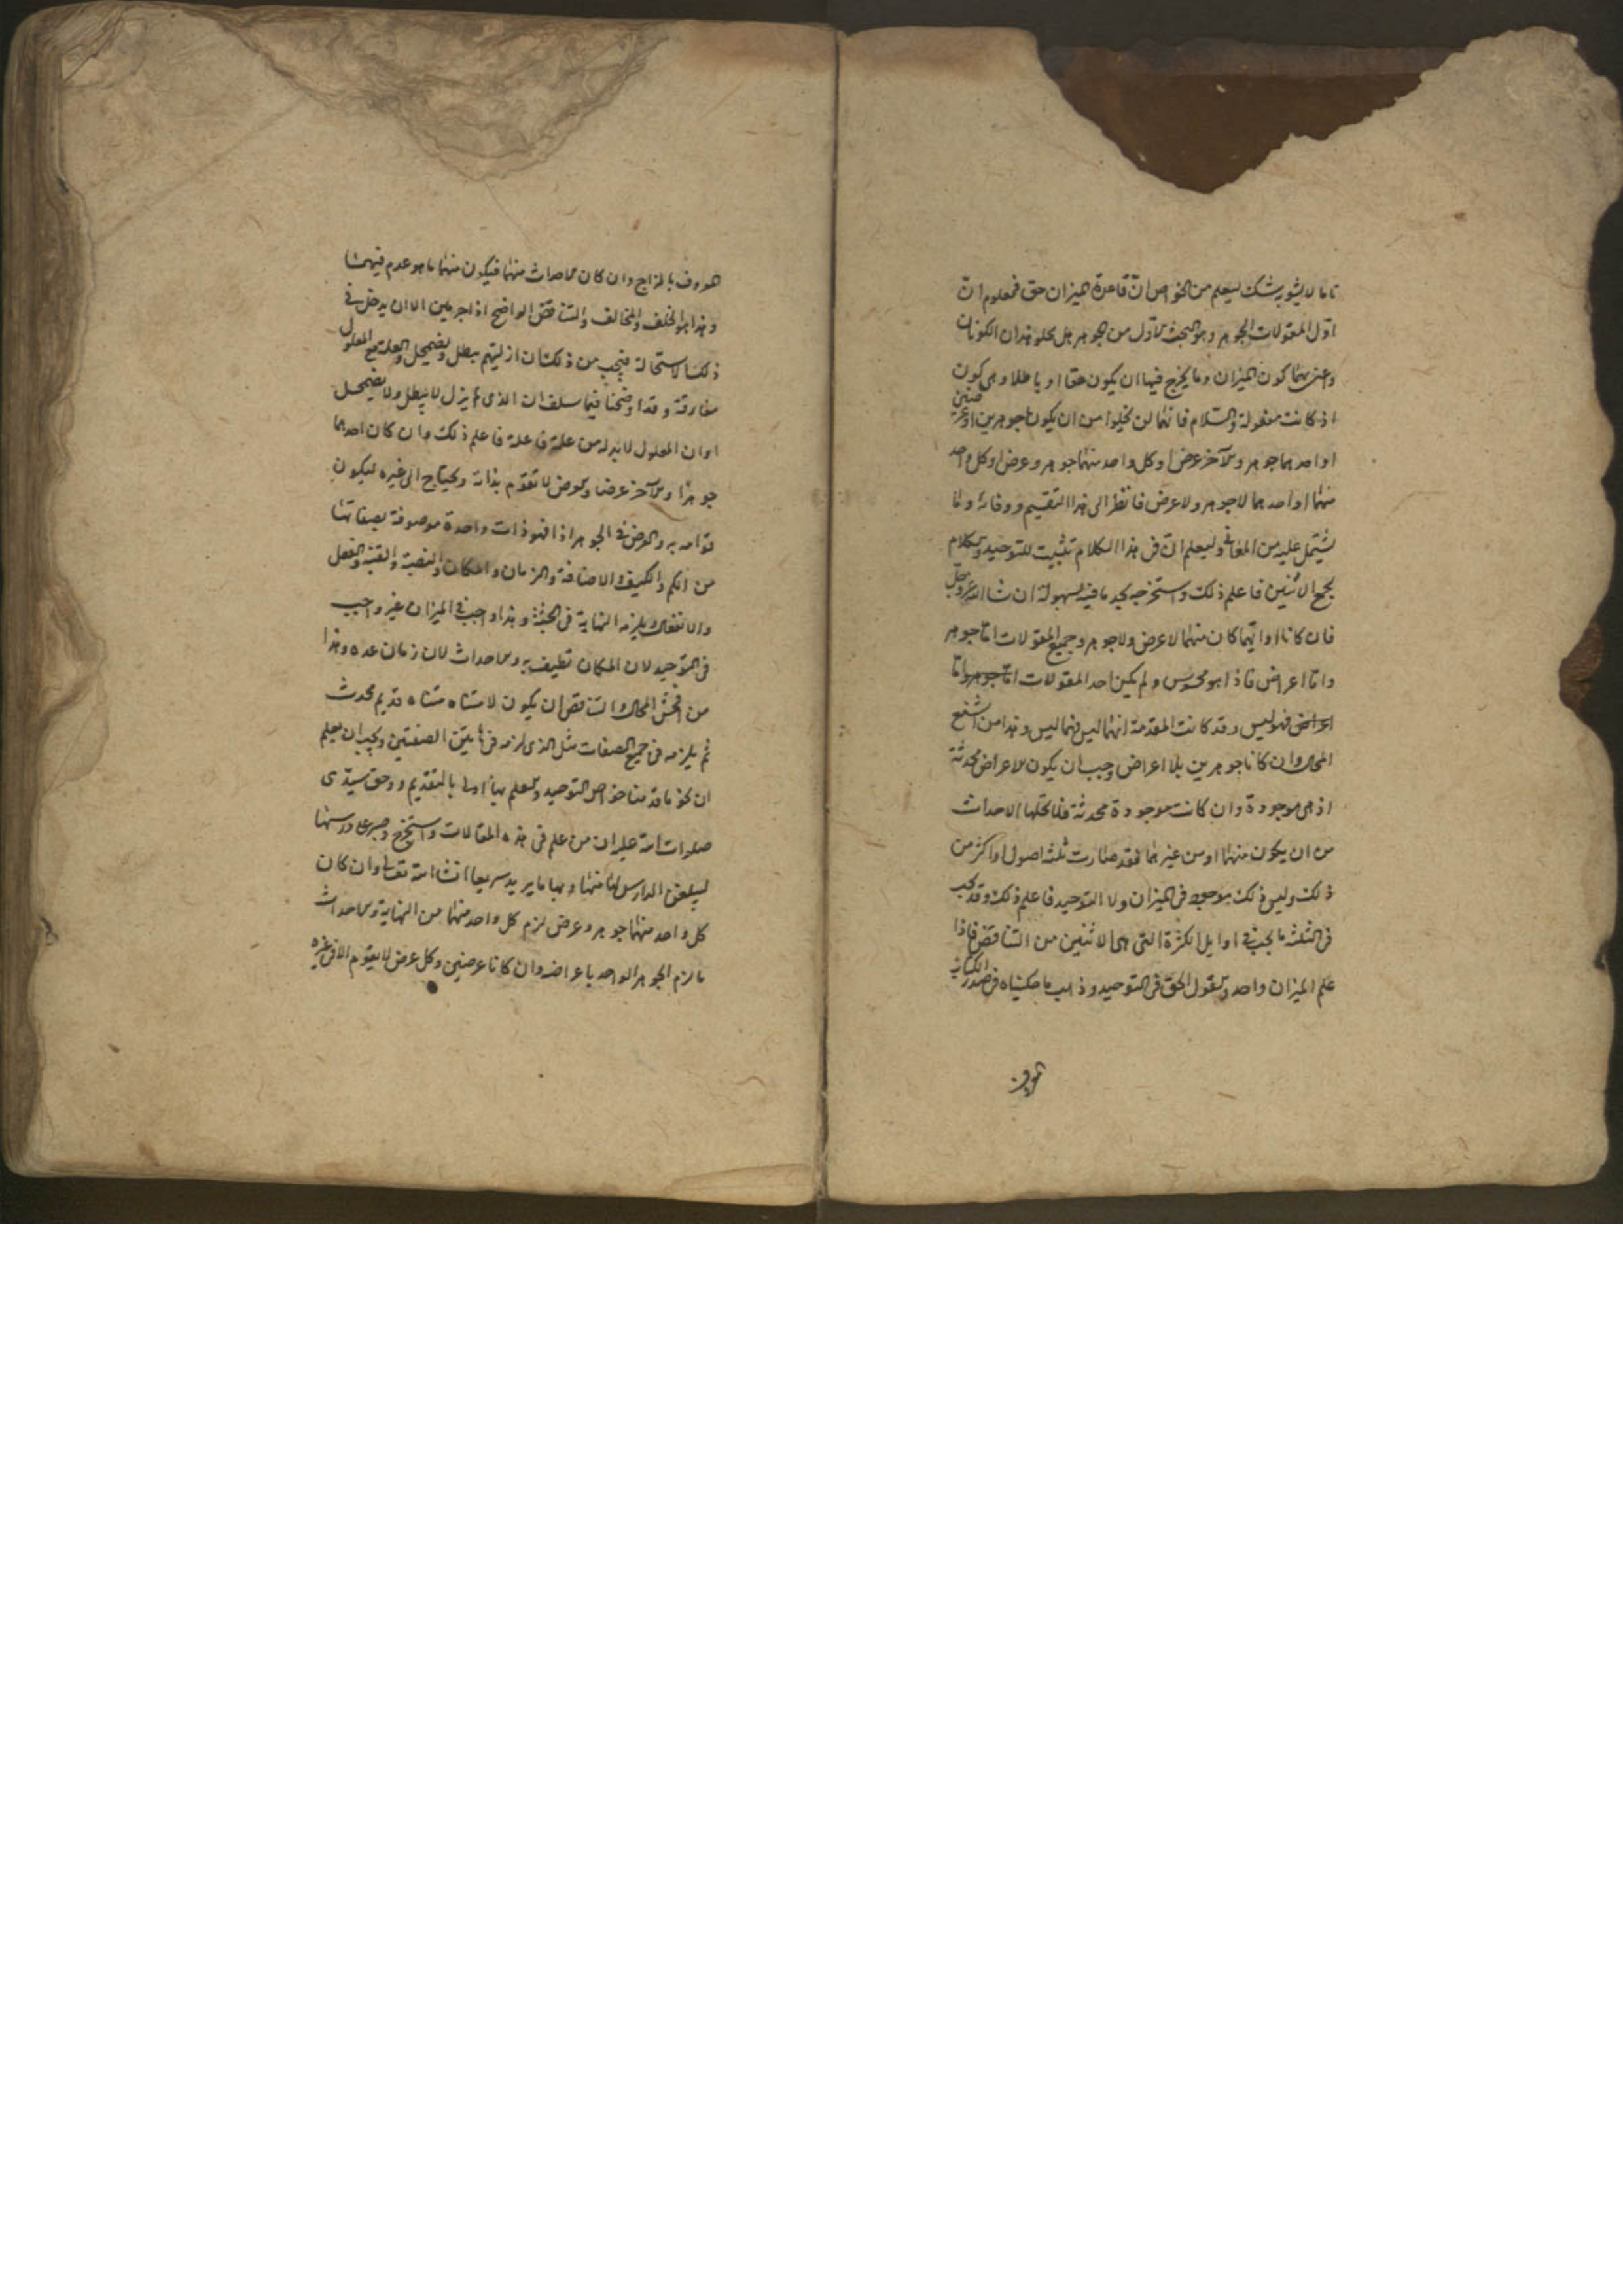 تاما لا يشوبه شك ليعلم من الخواص ان قاعدة الميزان حق فمعلوم ان
اول المقولات الجوهر وهو البحث الاول من الجوهر هل يخلو هذان الكونان
واعنى بهما كون الميزان وما يخرج فيها ان يكون حقا او باطلا وهى كون
اذ كانت منفعولة والسلام فانهما لن يخلوا من ان يكونا جوهرين او عرضين
او احدهما جوهر والاخر عرض او كل واحد منهما جوهر وعرض او كل واحد
منهما او احدهما لا جوهر ولا عرض فانظر الى هذا التقسيم ووفائه وما
يشتمل عليه من المعانى وليعلم ان فى هذا الكلام تثبيت للتوحيد والكلام
يجمع الاثنين فاعلم ذلك واستخرجه تجد ما فيه بسهولة ان شا الله عز وجل
فان كانا او ايهما كان منهما لا عرض ولا جوهر وجميع المقولات اما جوهر
واما اعراض فاذا هو محسوس ولم يكن احد المقولات اما جوهر واما
اعراض فهو ليس وقد كانت المقدمة انهما ليس فهما ليس وهذا من اشنع
المحال وان كانا جوهرين بلا اعراض وجب ان يكون الاعراض محدثة
اذ هى موجودة وان كانت موجودة محدثة فلمحلها الاحداث
من ان يكون منهما او من غيرهما فقد صارت ثلثة اصول او اكثر من
ذلك وليس ذلك موجود فى الميزان ولا التوحيد فاعلم ذلك وقد يجب
فى الثلثة ما يجب فى اوايل الكثرة التى هى الاثنين من التناقض فاذا
علم الميزان واحد والقول الحق فى التوحيد وذهب ما حكيناه فى صدر الكتاب
المعروف بالمزاج وان كان الاحداث منهما فيكون منهما ما هو عدم فيهما
وهذا هو الخلف والمخالف والتناقض الواضح اذا جرمين الا ان يدخل فى
ذلك الاستحالة فيجب من ذلك ان ازليتهم يبطل ويضمحل والعلة مع المعلول
مفارقة وقد اوضحنا فيما سلف ان الذى لم يزل لا يبطل ولا يضمحل
او ان المعلول لا بد له من علة فاعلة فاعلم ذلك وان كان احدهما
جوهرا والاخر عرضا والعرض لا تقوم بذاته ويحتاج الى غيره ليكون
قوامه به والعرض فى الجوهر اذا فهو ذات واحدة موصوفة بصفاتها
من الكم والكيف والاضافة والزمان والمكان والنصبة والقنية والفعل
والانفعال ويلزمه النهاية فى الجثة وهذا واجب فى الميزان غير واجب
فى التوحيد لان المكان تطيف به والاحداث لان زمان عده وهذا
من افحش المحال والتناقض ان يكون لا متناه متناه قديم محدث
ثم يلزمه فى جميع الصفات مثل الذى لزمه فى هاتين الصفتين ويجب ان يعلم
ان نحو ما قدمنا خواص التوحيد والعلم بها اولى بالتقديم ووحق سيدى
صلوات الله عليه ان من علم فى هذه المقالات واستخرج وصبر على درسها
ليبلغن الدارس لها منها وبها ما يريد سريعا انشا الله تعالى وان كان
كل واحد منهما جوهر وعرض لزم كل واحد منهما من النهاية والاحداث
ما لزم الجوهر الواحد باعراضه وان كانا عرضين وكل عرض لا يقوم الا فى غيره